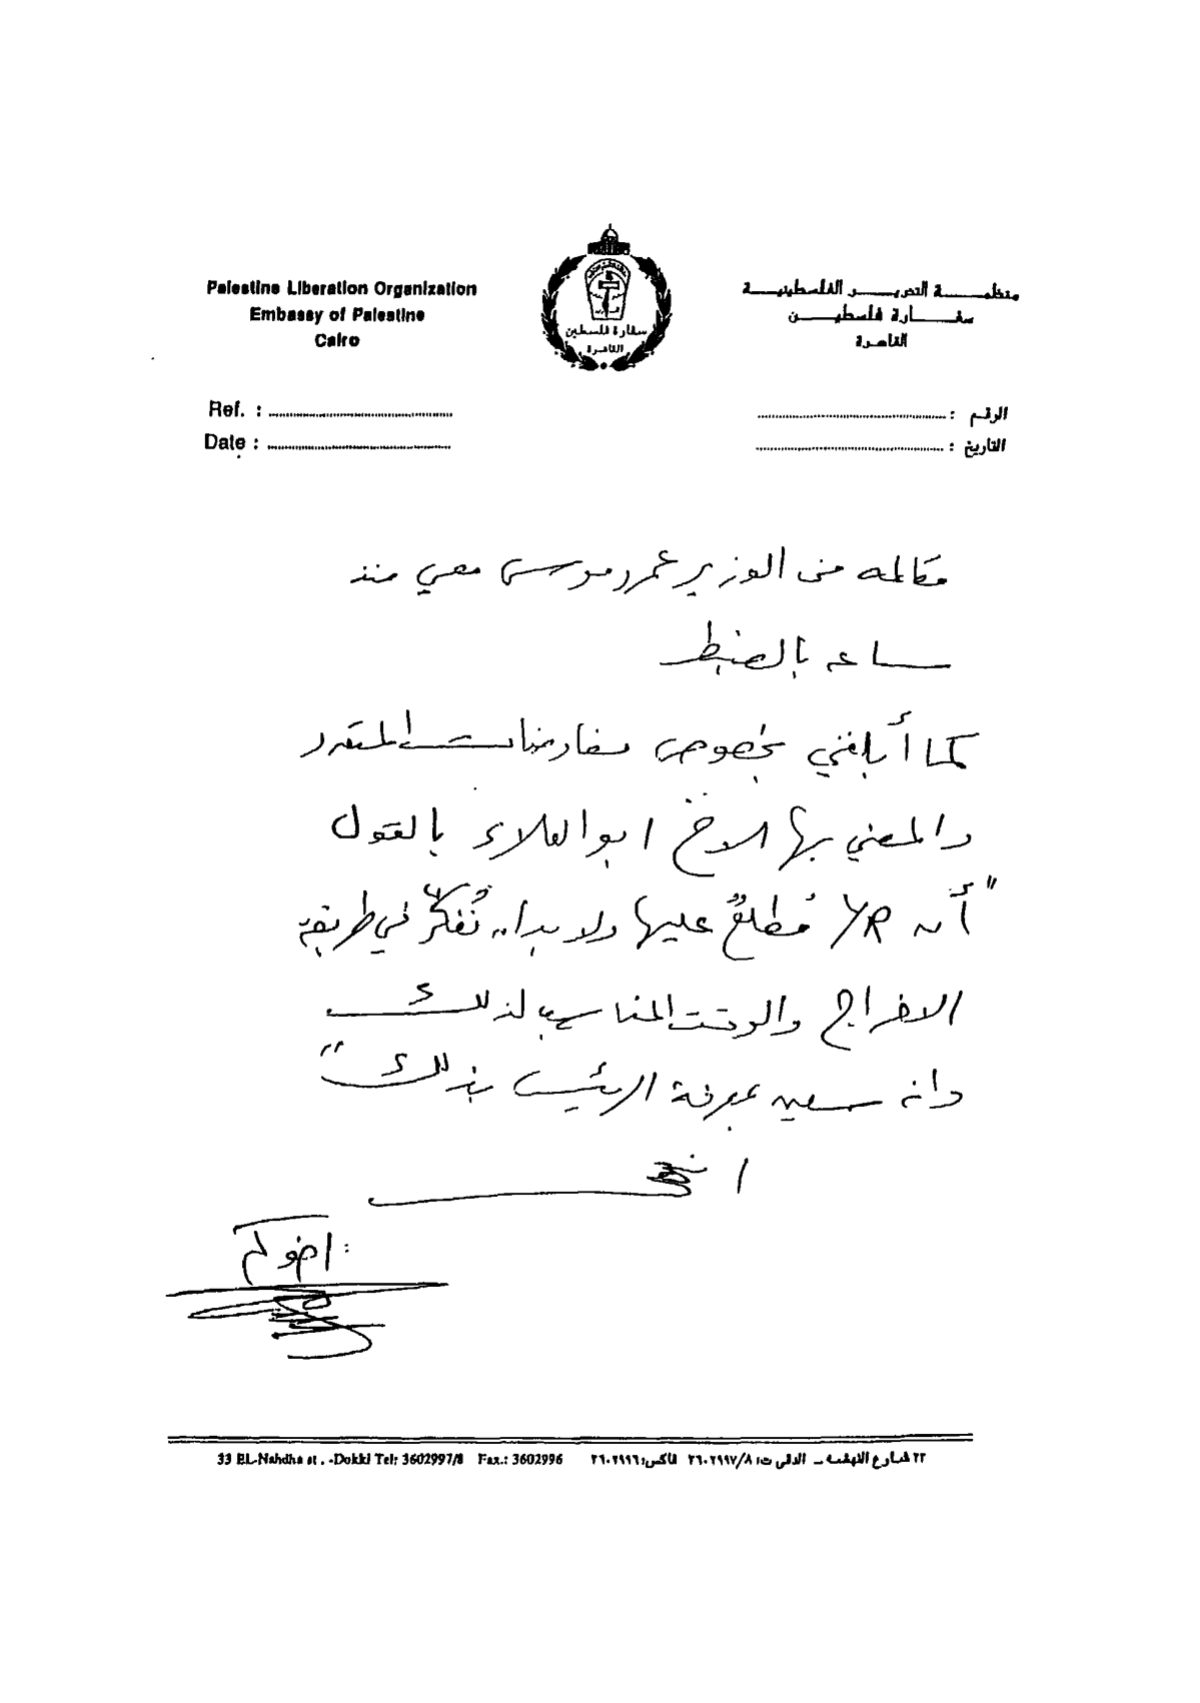 Palestine Liberation Organization
Embassy of Palestine
Cairo
منظمة التحرير الفلسطينية
سفارة فلسطين
القاهرة
سفارة فلسطين
القاهرة
Ref. :
Date :
الرقم :
التاريخ :
مكالمه من الوزير عمرو موسى معي منذ
ساعه بالضبط
كما أبلغني بخصوص مفاوضات
والمعني بها الاخ ابو العلاء بالقول
"أنه YR مُطلعٌ عليها ولا بدا.. نُفكرّ في طريقة
الاخراج والوقت المناسب لذلك
وانه سعيد بمعرفة الرئيس بذلك"
اخوكم :
33 EL-Nahdha st . -Dokki Tel: 3602997/8 Fax.: 3602996
٣٣ شارع النهضة ــ الدقى ت: ٣٦٠٢٩٩٧/٨ فاكس: ٣٦٠٢٩٩٦